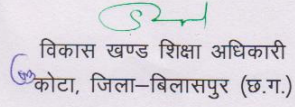 विकास खण्ड शिक्षा अधिकारी
कोटा, जिला–बिलासपुर (छ.ग.)